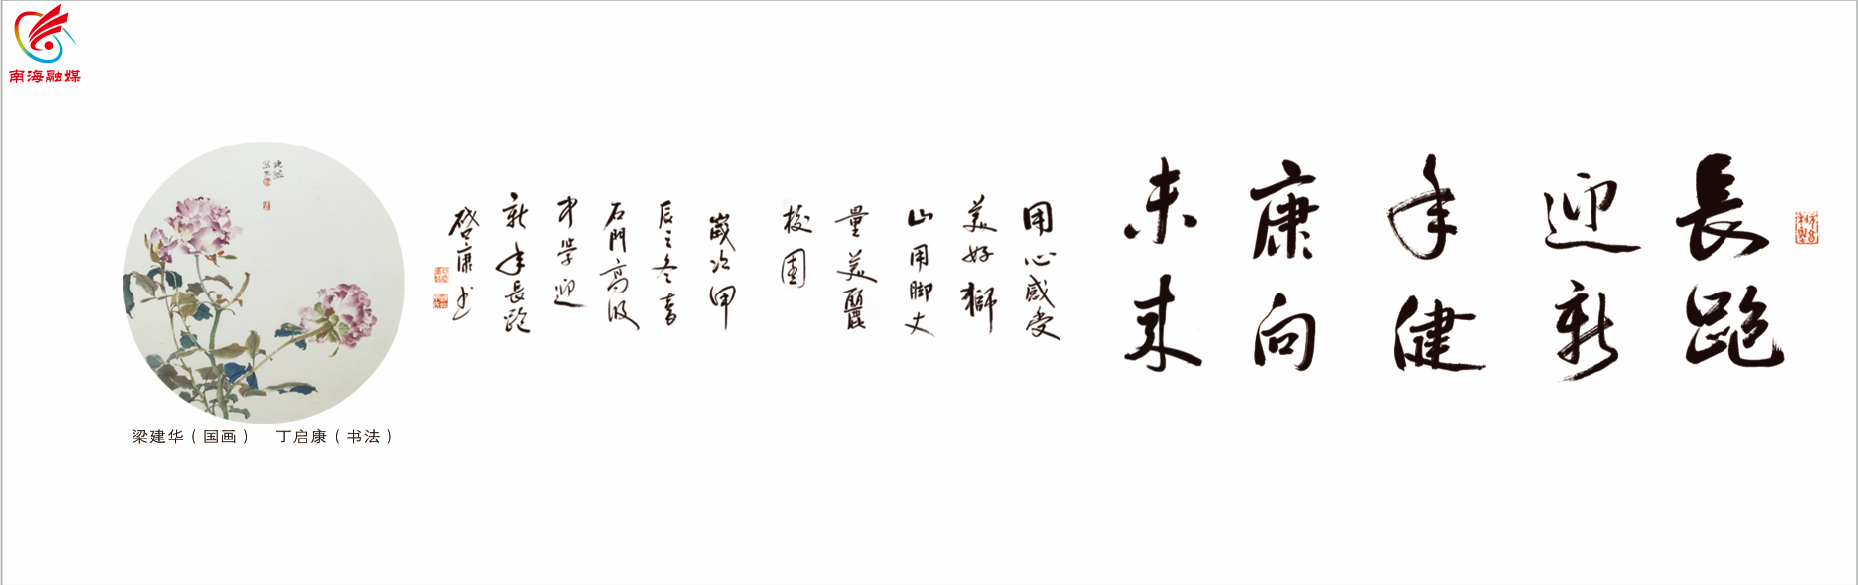 南海融媒
長跑
迎新
年健
康向
未来
用心感受
美好獅
山用脚丈
量美麗
校園
歲次甲
辰之冬書
石門高级
中學迎
新年長跑
啓康书
梁建华（国画） 丁启康（书法）